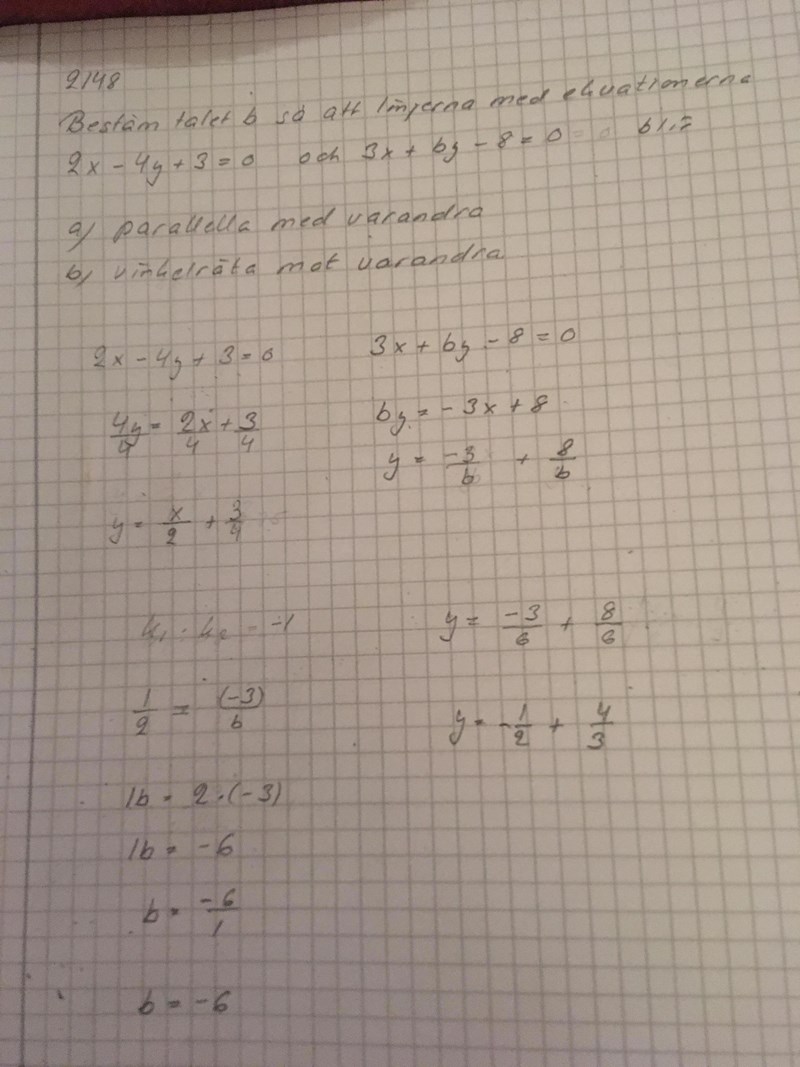 2148
Bestäm talet b så att linjerna med ekvationerna
2x - 4y + 3 = 0 och 3x + by - 8 = 0 blir
a) parallella med varandra
b) vinkelräta mot varandra
2x - 4y + 3 = 0
4y/4 = 2x/4 + 3/4
y = x/2 + 3/4
3x + by - 8 = 0
by = -3x + 8
y = -3/b + 8/b
k₁ · k₂ = -1
1/2 = (-3)/b
1b = 2 · (-3)
1b = -6
b = -6/1
b = -6
y = -3/6 + 8/6
y = -1/2 + 4/3